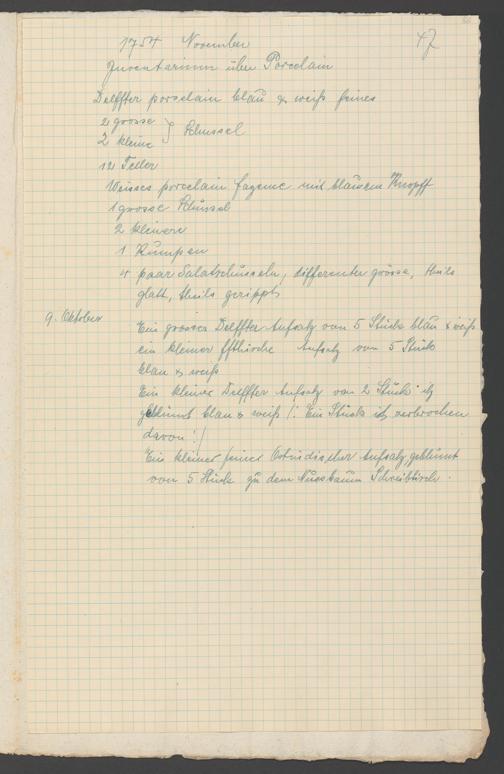 1754 November 47
Inventarium über Porcelain
Delffter porcelain blau & weiß feines
2 grosse
2 kleine } Schussel
12 Teller
Weisses porcelain fayenc mit blauem Knopff
1 grosse Schüssel
2 kleinere
1 Kumpen
4 paar Salatschüsseln, differenter grösse, theils
glatt, theils gerippt
9. Oktober
Ein grosser Delffter Aufsatz von 5 Stück blau & weiß
ein kleiner Aufsatz von 5 Stück
blau & weiß
Ein kleiner Delffter Aufsatz von 2 Stück
geblümt blau & weiß /: Ein Stück ist verbrochen
davon :/
Ein kleiner feiner Ostindischer Aufsatz geblümt
von 5 Stück zu dem Nussbaum Schreibtisch.